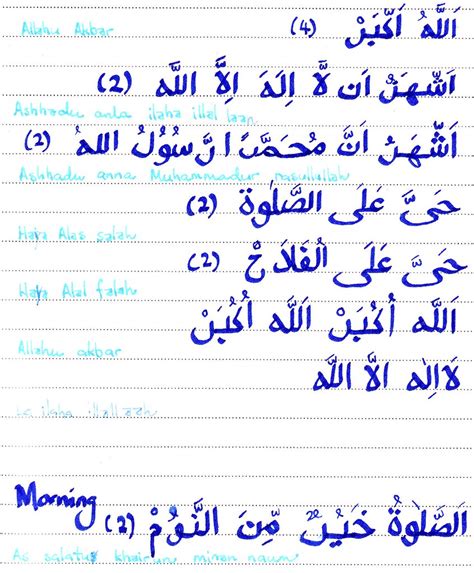 اَللّٰهُ اَكْبَرْ (4)
Allahu Akbar
اَشْهَدُ اَن لَّا اِلٰهَ اِلَّا اللّٰه (2)
Ashhadu anla ilaha illal laan
اَشْهَدُ اَنَّ مُحَمَّدًا رَّسُوْلُ اللهُ (2)
Ashhadu anna Muhammadur rasullullah
حَىَّ عَلَى الصَّلٰوة (2)
Haya Alas salah
حَىَّ عَلَى الْفَلَاحْ (2)
Haya Alal falah
اَللّٰه اُكْبَرْ اَللّٰه اُكْبَرْ
Allahu akbar
لَااِلٰه اِلَّا اللّٰه
La ilaha illallaah
Morning
اَلصَّلٰوةُ خَيْرٌ مِّنَ النَّوْمْ (2)
As salatu khairum minan naum